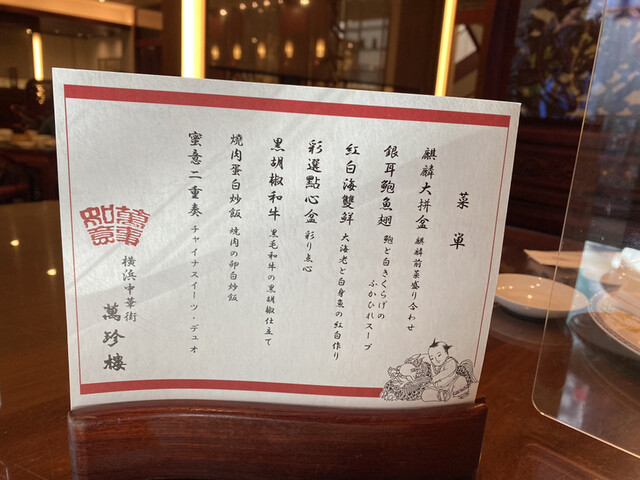 菜単
麒麟大拼盆 麒麟前菜盛り合わせ
銀耳鮑魚翅 鮑と白きくらげの
ふかひれスープ
紅白海雙鮮 大海老と白身魚の紅白作り
彩選點心盒 彩り点心
黒胡椒和牛 黒毛和牛の黒胡椒仕立て
燒肉蛋白炒飯 焼肉の卵白炒飯
蜜意二重奏 チャイナスイーツ・デュオ
萬事
如意
横浜中華街
萬珍樓